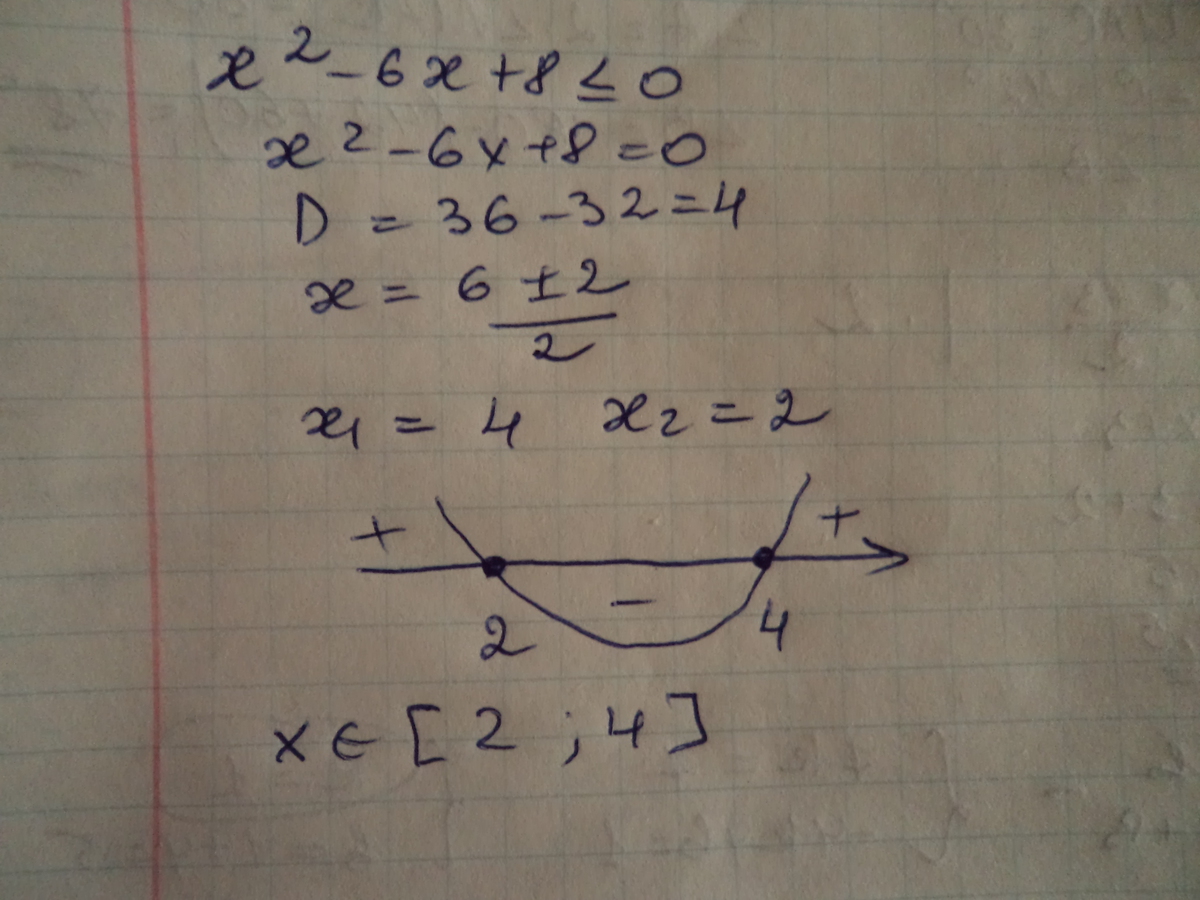 x² - 6x + 8 ≤ 0
x² - 6x + 8 = 0
D = 36 - 32 = 4
x = 6 ± 2
2
x₁ = 4 x₂ = 2
+ +
−
2 4
x ∈ [2 ; 4]